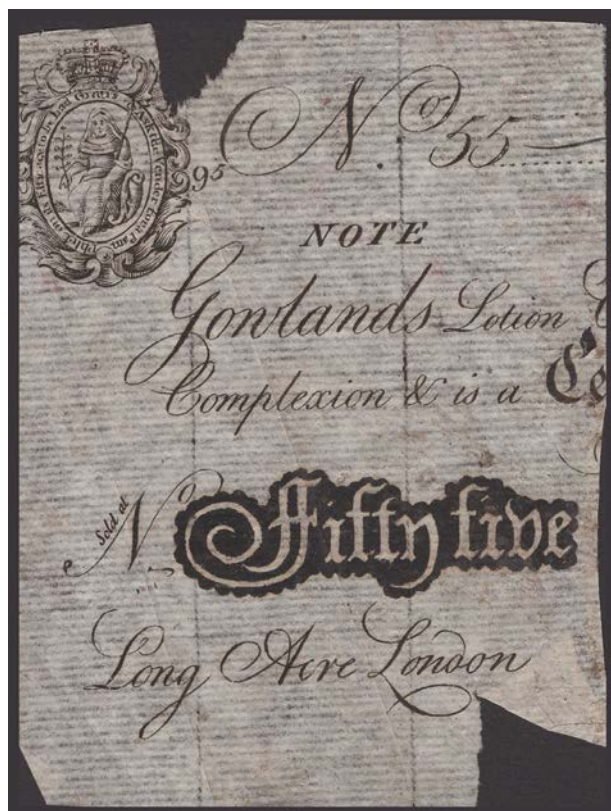 No. 55
95
NOTE
Gowlands Lotion
Complexion & is a
Sold at
No. Fifty five
Long Acre London